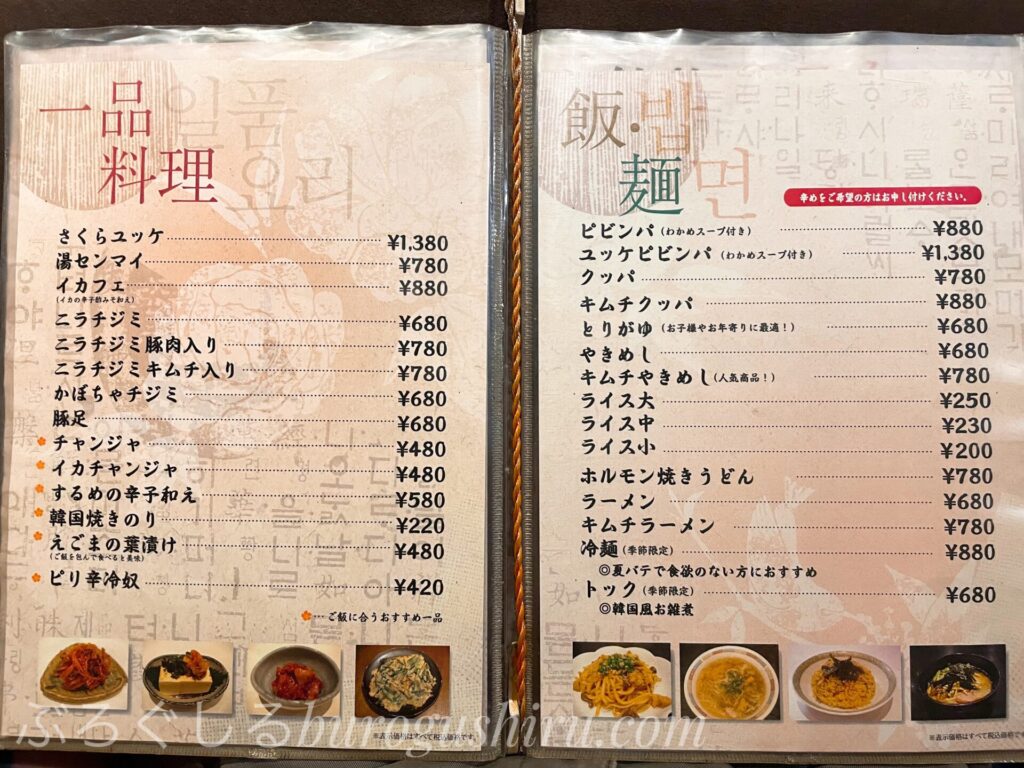 一品
料理
일품
요리
さくらユッケ ¥1,380
湯センマイ ¥780
イカフェ ¥880
(イカの辛子酢みそ和え)
ニラチジミ ¥680
ニラチジミ豚肉入り ¥780
ニラチジミキムチ入り ¥780
かぼちゃチジミ ¥680
豚足 ¥680
チャンジャ ¥480
イカチャンジャ ¥480
するめの辛子和え ¥580
韓国焼きのり ¥220
えごまの葉漬け ¥480
(ご飯を包んで食べると美味)
ピリ辛冷奴 ¥420
…ご飯に合うおすすめ一品
※表示価格はすべて税込価格です。
飯・麺
밥면
辛めをご希望の方はお申し付けください。
ピビンパ(わかめスープ付き) ¥880
ユッケピビンパ(わかめスープ付き) ¥1,380
クッパ ¥780
キムチクッパ ¥880
とりがゆ(お子様やお年寄りに最適!) ¥680
やきめし ¥680
キムチやきめし(人気商品!) ¥780
ライス大 ¥250
ライス中 ¥230
ライス小 ¥200
ホルモン焼きうどん ¥780
ラーメン ¥680
キムチラーメン ¥780
冷麺(季節限定) ¥880
◎夏バテで食欲のない方におすすめ
トック(季節限定) ¥680
◎韓国風お雑煮
※表示価格はすべて税込価格です。
ぶろぐしるburogushiru.com